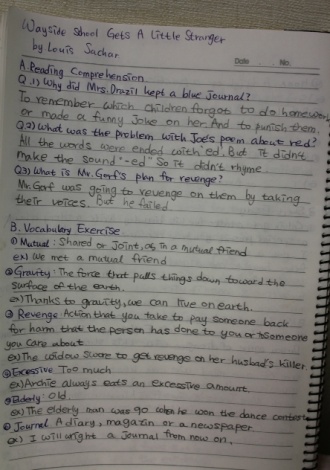 Wayside School Gets A Little Stranger
by Louis Sachar
Date No.
A. Reading Comprehension
Q.1) Why did Mrs. Drazil kept a blue Journal?
To remember which children forgot to do homework,
or made a funny Joke on her. And to punish them.
Q.2) what was the problem with Joe's poem about red?
All the words were ended with 'ed'. But it didn't
make the sound "-ed" So it didn't rhyme.
Q3) What is Mr. Gorf's plan for revenge?
Mr. Gorf was going to revenge on them by taking
their voices. But he failed.
B. Vocabulary Exercise
① Mutual: Shared or Joint, as in a mutual friend
ex) We met a mutual friend
② Gravity: The force that pulls things down toward the
surface of the earth.
ex) Thanks to gravity, we can live on earth.
③ Revenge Action that you take to pay someone back
for harm that the person has done to you or someone
you care about
ex) The widow swore to get revenge on her husbad's killer
④ Excessive Too much
ex) Archie always eats an excessive amount.
⑤ Elderly: old.
ex) The elderly man was 90 when he won the dance contest
⑥ Journal A diary, magazin or a newspaper
ex) I will wright a Journal from now on.